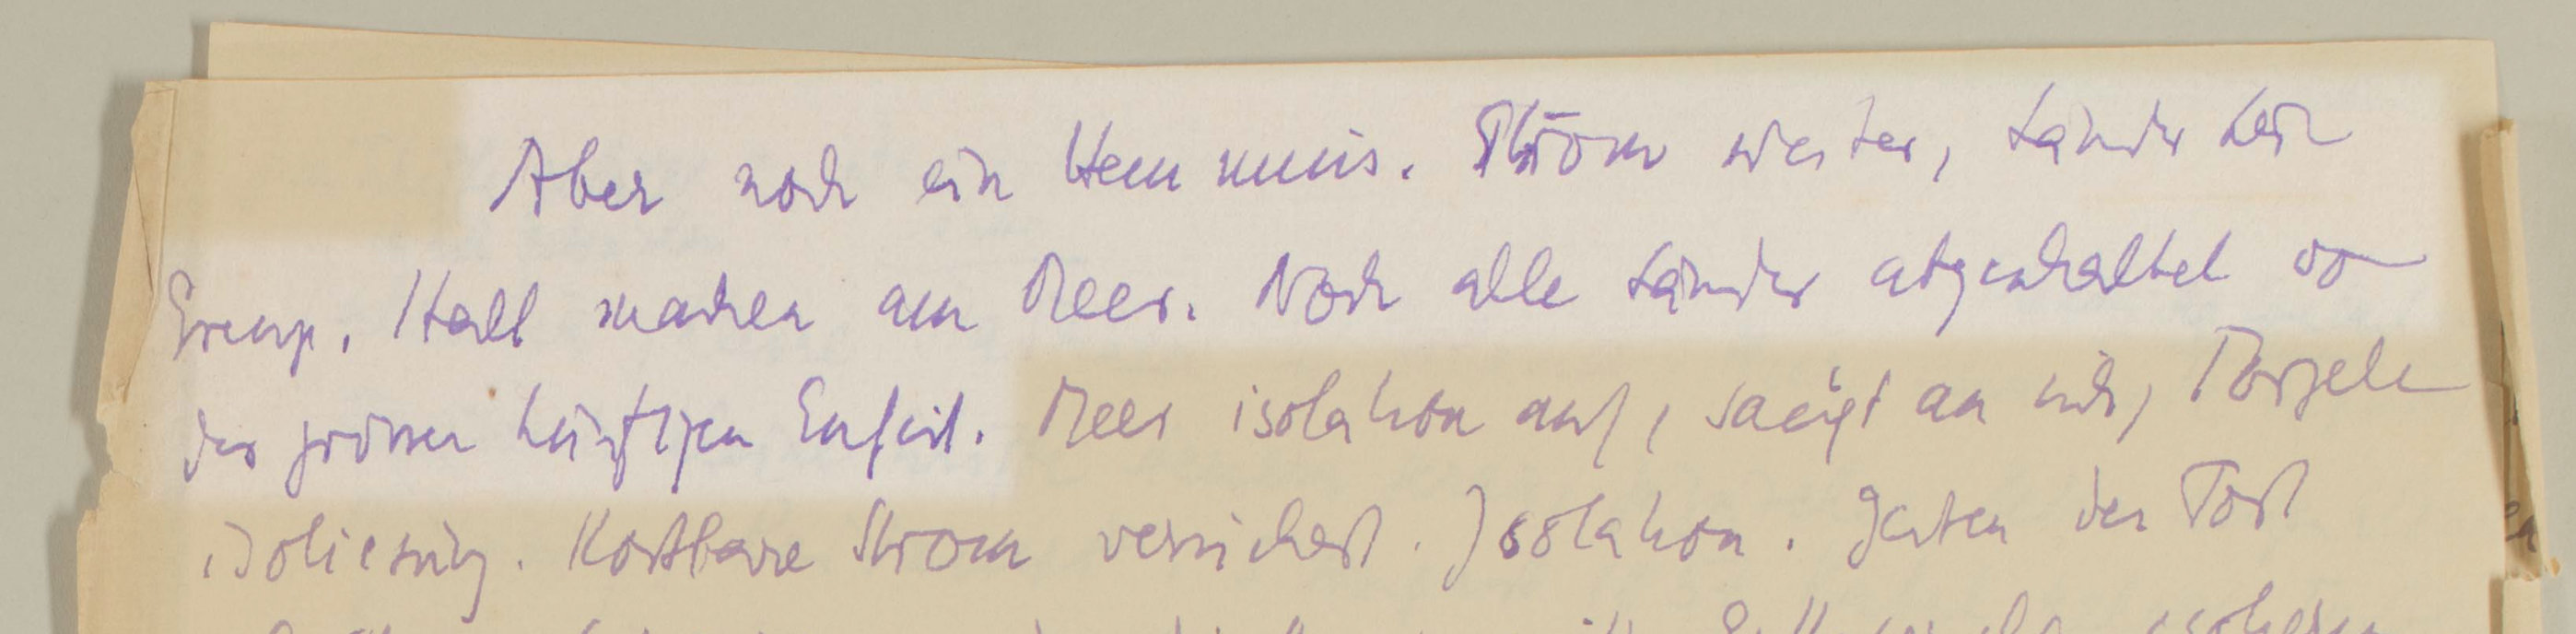 Aber noch ein Hemmnis. Strom weiter, Länder kein
Grenze. Halt machen am Meer. Noch alle Länder abgeschaltet von
der grossen künftigen Einheit. Meer isolation auf, saugt an sich, Porzelan
isolierung. Kostbare Strom versichert. Isolation. Gesten der Tost